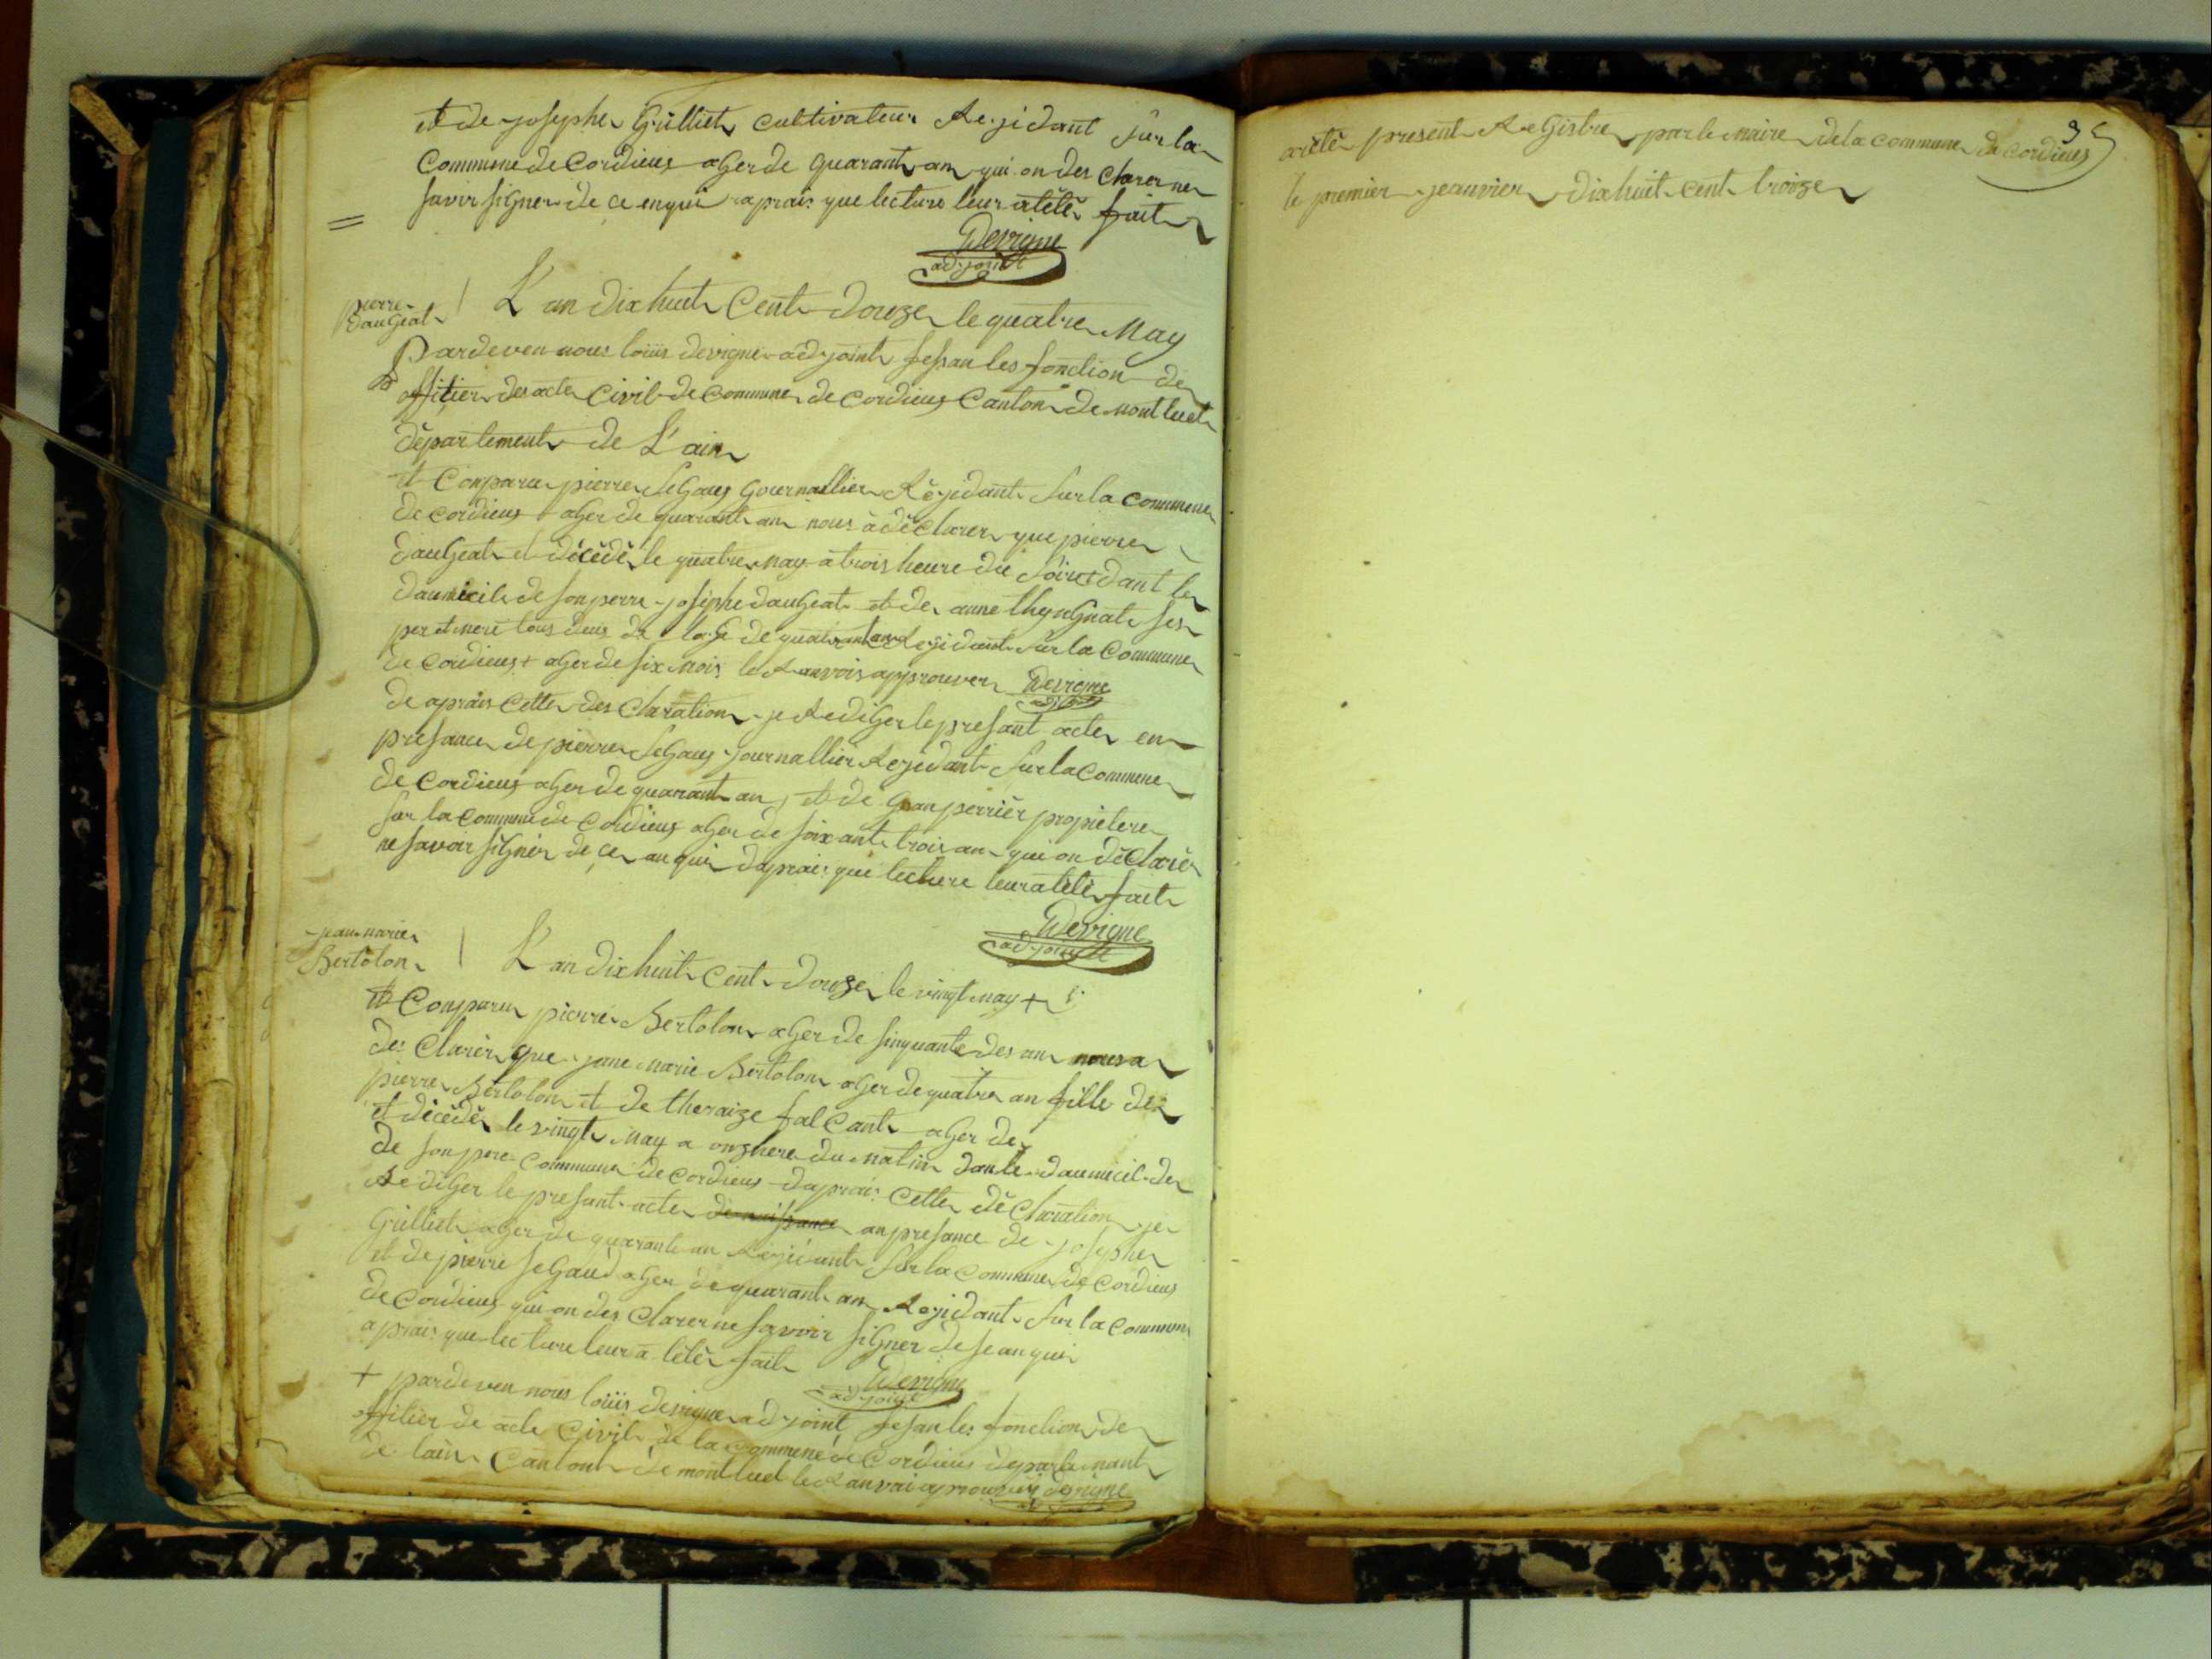 et de josephe Grilliet cultivateur Rezidant sur la
Commune de Cordieus aGer de quarant an qui on des Clarer ne
savir siGner de ce enqui aprais que lecture leur a tétè fait
Devigne
adjoint
pierre
dauGeat
L'an dix huit Cent douze le quatre May
Pardeven nous loüis devigne adjoint fesan les fonction de
offitier des acte Civil de Commune de Cordieus Canton de montluet
département de L'ain
et Conparu pierre SeGaus Gournallier Rézidant sur la Commune
de Cordieus aGer de quarant an nous à déClarer que pierre
dauGeat et décèdé le quatre may a trois heure du soire dant le
daumicile de son perre josephe dauGeat et de anne ses
per et mere tous deus de laGe de quarantan Rezidant sur la Commune
de Cordieus + aGer de six mois le Ranvois approuver Devigne
adjoint
de aprais Cette des Claration je RediGer le presant acte en
presance de pierre SeGaus journallier Rezidant sur la Commune
de Cordieus aGer de quarant an et de Gean perrier propietere
sur la Commune de Cordieus aGer de soixant trois an qui on déClarè
ne savoir siGner de ce an qui daprais que lecture leur a tétè fait
Devigne
adjoint
jean marie
Bertolon
L'an dix huit Cent douze le vingt may +
et Conparu pierre Bertolon aGer de sinquante des an nous a
des Clarér que jane Marie Bertolon aGer de quatre an fille de
pierre Bertolon et de theraize falCant aGer de
et décèdé le vingt May a onzhere du matin dan le daumicil de
de son pere Commune de Cordieus daprais Cette déClaration je
RediGer le presant acte de naissance an presance de josephe
Grilliet aGer de quarant an Rezidant sur la Commune de Cordieus
et de pierre SeGaud aGer de quarant an Rezidant sur la Commune
de Cordieus qui on des Clarer ne savoir siGner de se an qui
aprais que lecture leur a tétè fait
Devigne
adjoint
+ pardeven nous loüis devigne adjoint fesan les fonction de
offitier de acte Civil de la Commune de Cordieus departemant
de lain Canton de montluel le Ranvai aprouver devigne
adjoint
95
arètè present ReGistre par le maire de la commune de Cordieus
le premier jeanvier dix huit cent troize